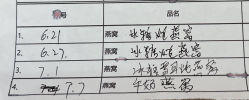 品名
1. 6.21 燕窝 冰糖燉燕窝
2. 6.27. 燕窝 冰糖燉燕窝
3. 7.1 燕窝 冰糖雪耳炖燕窝
4. 7.7 燕窝 牛奶燕窝